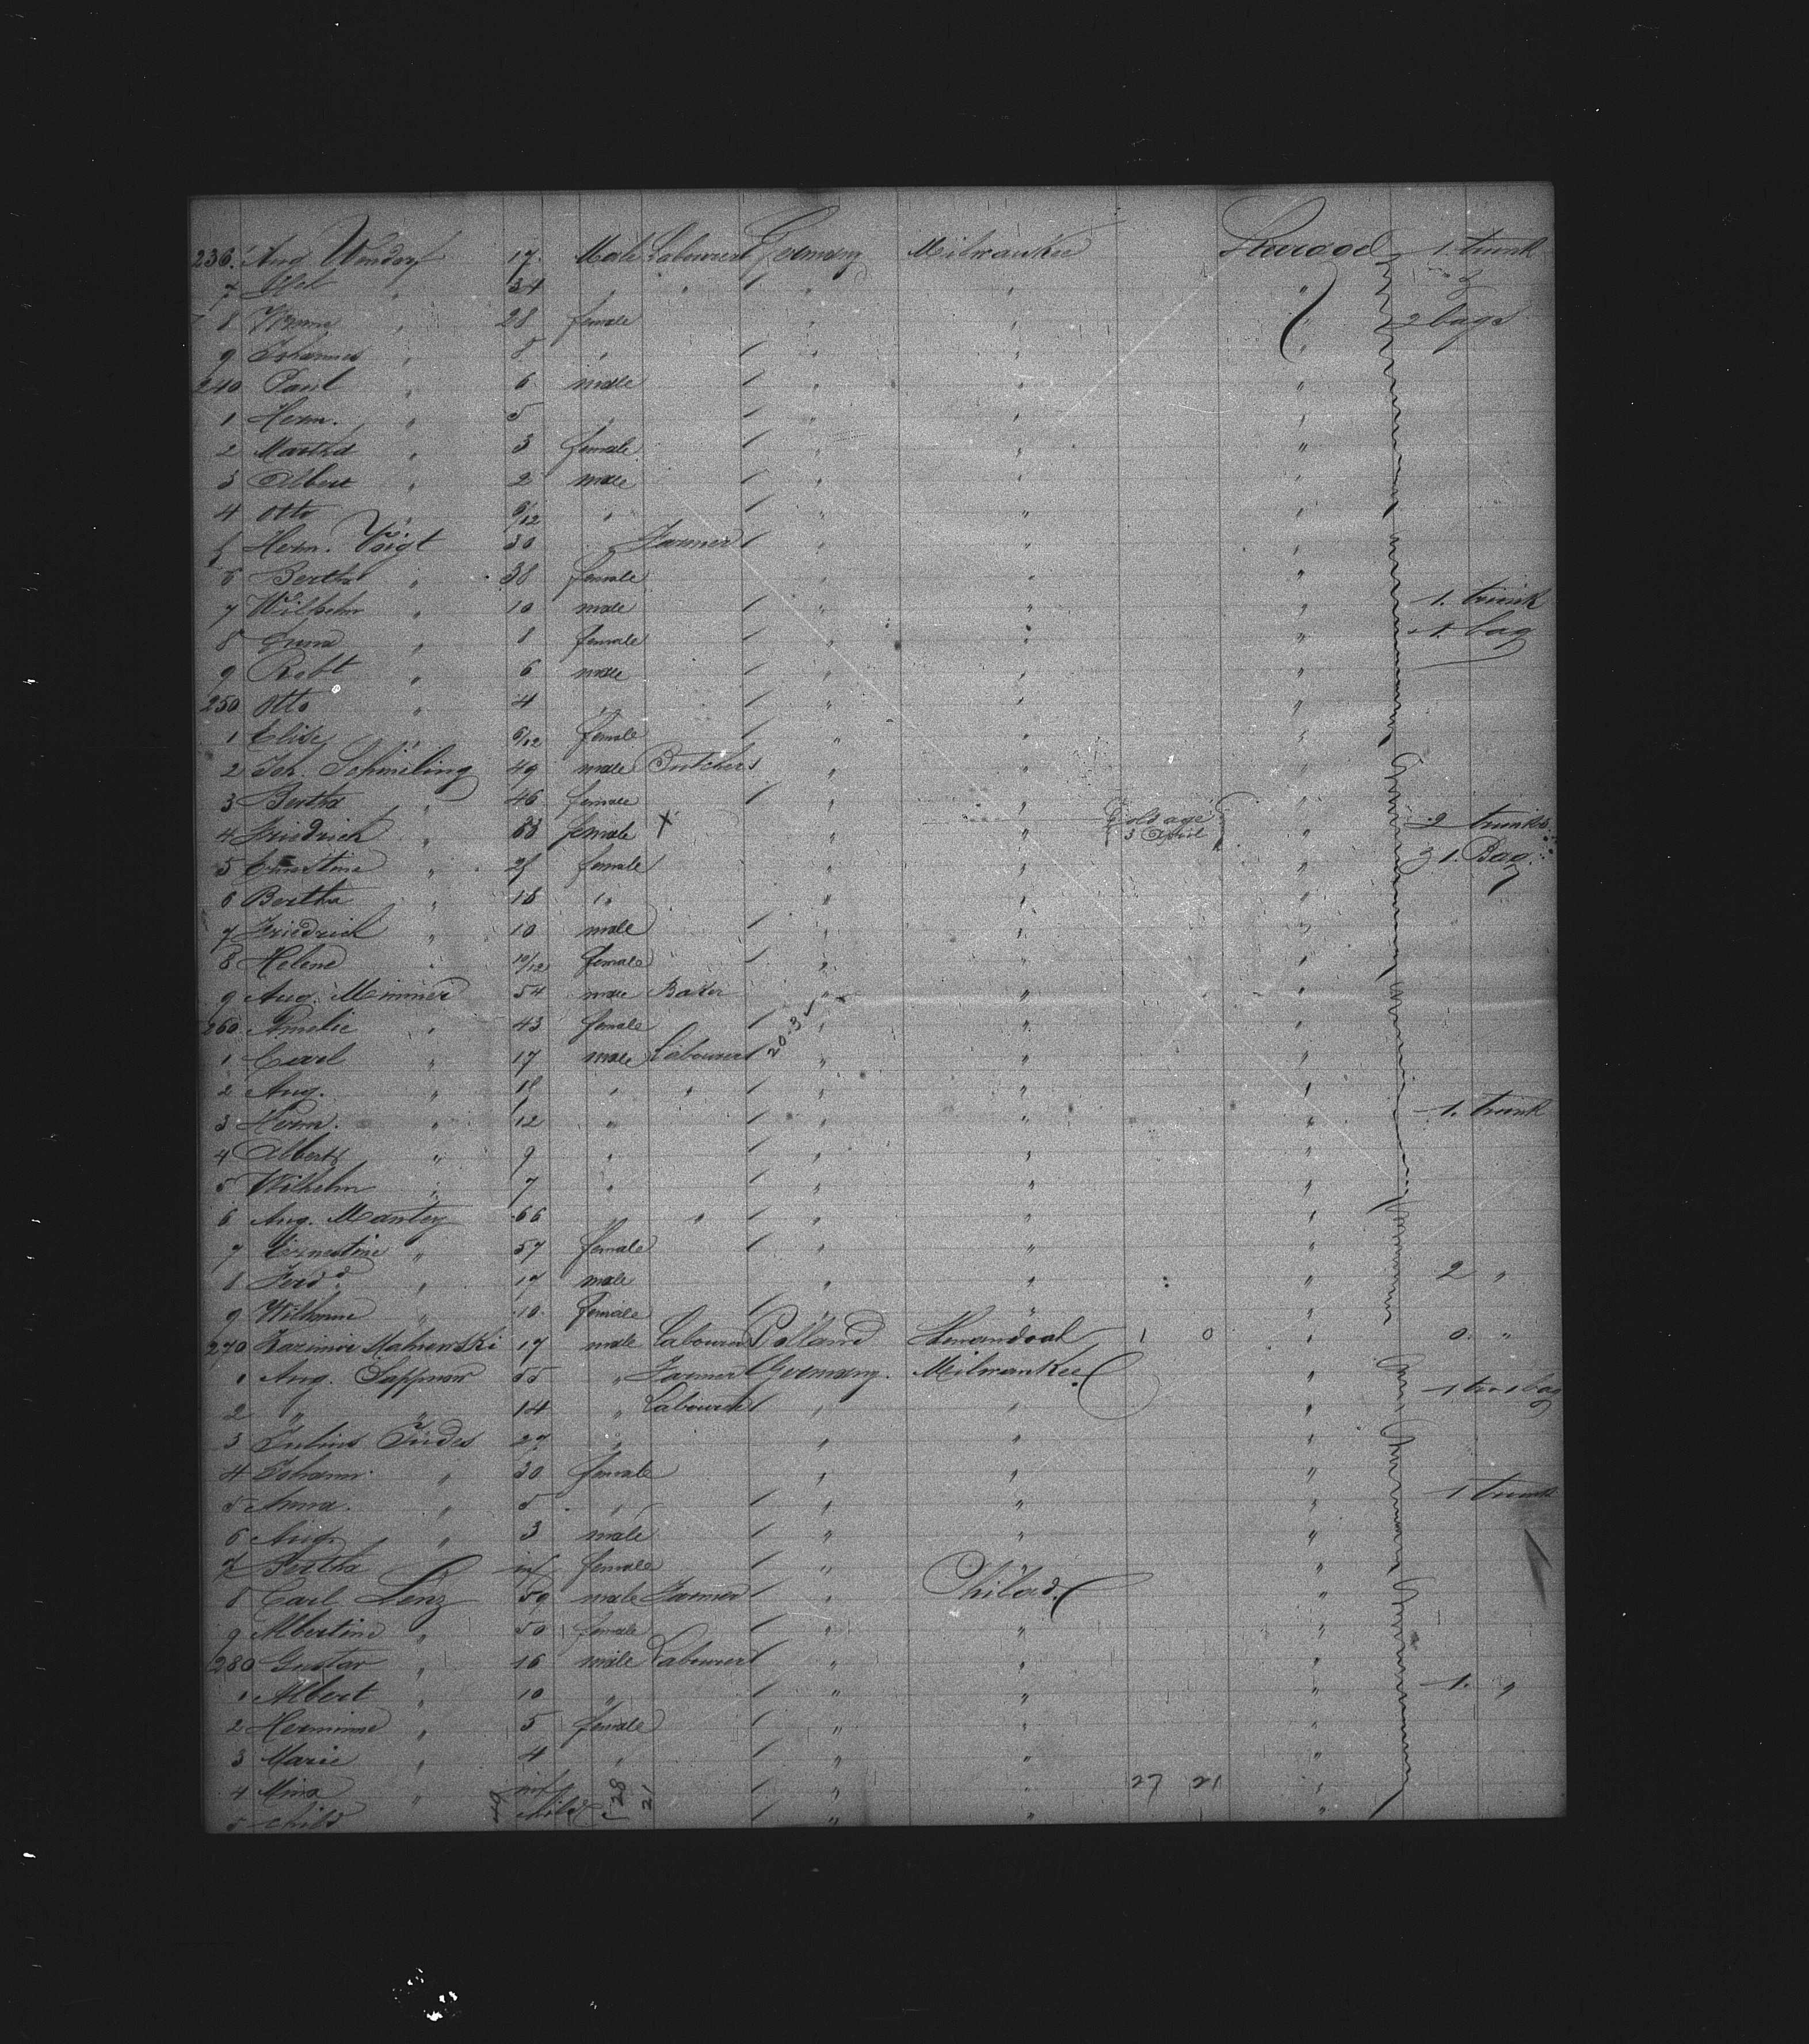 236. Aug. Wendorf 17 Male Labourer Germany Milwaukee Steerage 1 trunk
7 " 34 " " " " " &
8 " 28 female " " " 2 bags
9 Johannes " 8 " " " "
240 Paul " 6 male " " "
1 Herm. " 5 " " " "
2 Martha " 3 female " " "
3 Albert " 2 male " " "
4 Otto " 9/12 " " " "
5 Herm. Voigt 30 " Farmer " " "
6 Bertha " 38 female " " "
7 Wilhelm " 10 male " " " 1. trunk
8 Emma " 8 female " " " 1. bag
9 Robt " 6 male " " "
250 Otto " 4 " " " "
1 Elise " 6/12 female " " "
2 Joh. Schmeling 49 male Butcher " " "
3 Bertha " 46 female " " "
4 Friedrich " female X " " old age 3 April " 2 trunks
5 Ernestine " female " " " & 1. Bag
6 Bertha " 18 " " " "
7 Friedrich " 10 male " " "
8 Helene " 10/12 female " " "
9 Aug. 54 male Baker " " "
260 Amelie " 43 female 20-3 " " "
1 Carl " 17 male Labourer " " "
2 Aug. " 18 " " " " "
3 Herm. " 12 " " " " 1. trunk
4 Albert " 9 " " " "
5 Wilhelm " 7 " " " "
6 Aug. Mantey 66 " " " " "
7 Ernestine " 57 female " " "
8 Ferdd " 17 male " " " 2 "
9 " 10 female " " "
270 17 male Labourer 1 0 " 0 "
1 Aug. 55 " Farmer Germany. Milwaukee "
2 " " 14 " Labourer " " " 1 tr 1 bag
3 Julius 27 " " " "
4 Johann. " 30 female " " "
5 Anna. " 5 " " " " 1 trunk
6 Aug. " 3 male " " "
7 Bertha inf female " "
8 Carl Lenz 59 male Farmer " Philad. "
9 Albertine " 50 female " " "
280 Gustav " 16 male Labourer " " "
1 Albert " 10 " " " " 1. "
2 Hermine " 5 female " " "
3 Marie " 4 " " " "
4 Mina " inf " " 27 21 "
5 child child " " "